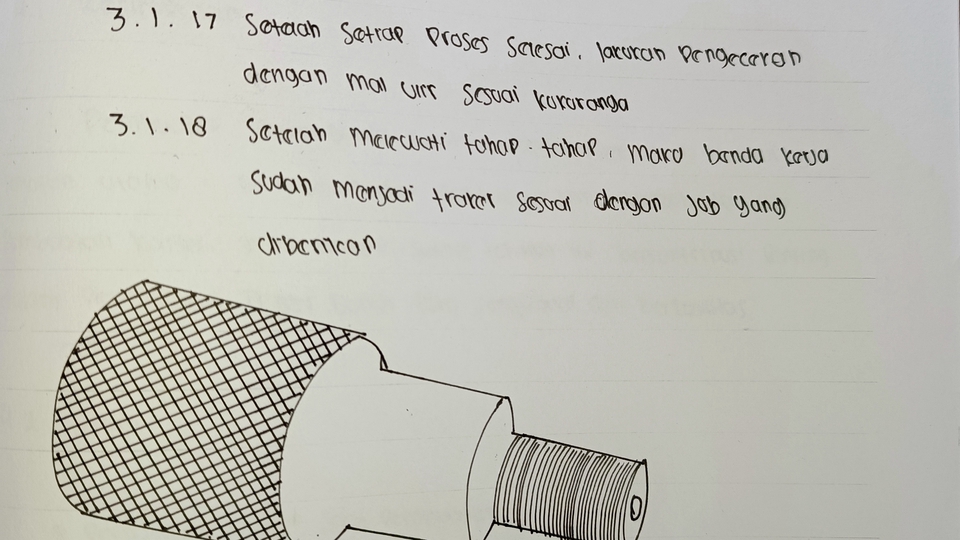 3.1.17 Setelah setiap proses selesai, lakukan pengecekan
dengan mal ulir sesuai kukurannya
3.1.18 Setelah melewati tahap-tahap, maka benda kerja
sudah menjadi traker sesuai dengan job yang
diberikan